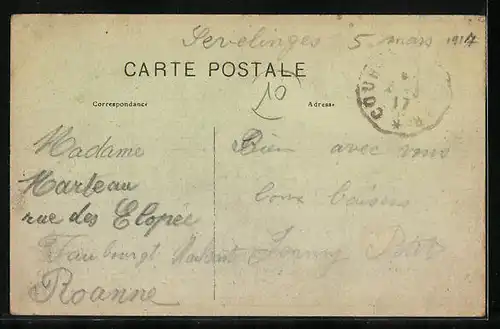 Sevelinges 5 mars 1917
CARTE POSTALE
10
Correspondance
Adresse
COUR
17
Madame
Marteau
rue des Elopée
Faubourgt
Roanne
Bien avec vous
bons baisers